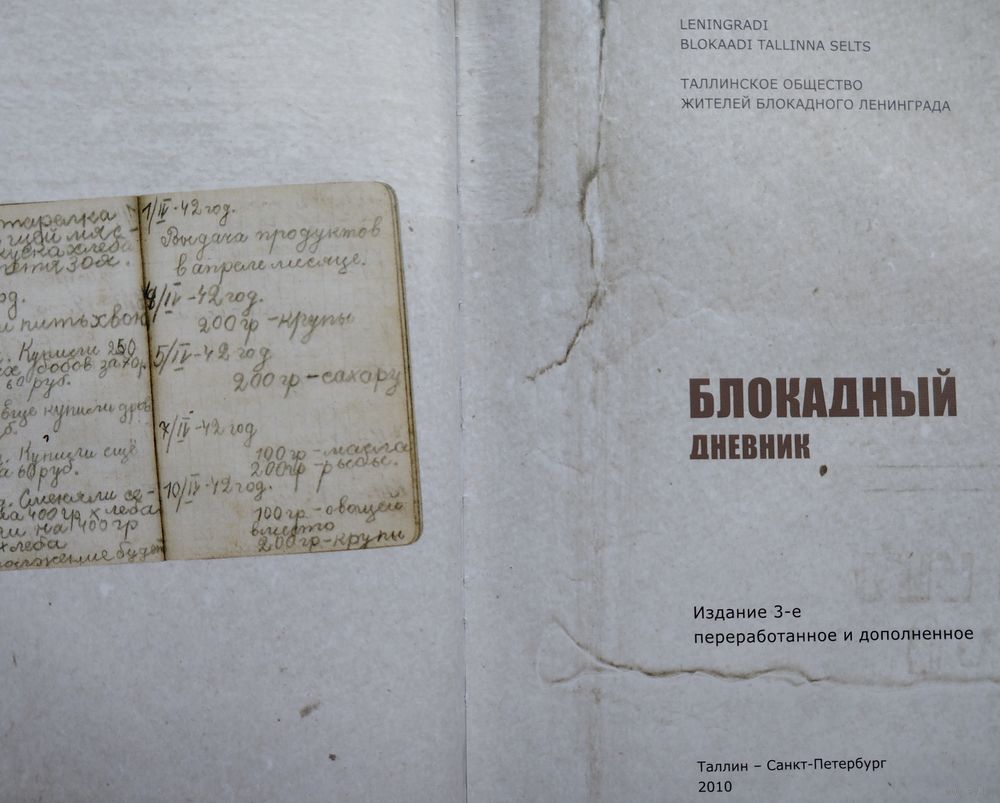 тарелка
куска хлеба
пить хвою
. Купили 250
бобов за 70р
60 руб.
еще купили дров
. Купили ещё
а 60 руб.
. Сменяли са-
на 400 гр хлеба
на 400 гр
хлеба
будет
1/IV-42 год.
Выдача продуктов
в апреле месяце.
/IV-42 год.
200 гр-крупы
5/IV-42 год
200 гр-сахару
7/IV-42 год
100 гр-масла
200 гр-рыбы.
10/IV-42 год.
100 гр-овощей
вместо
200 гр-крупы
LENINGRADI
BLOKAADI TALLINNA SELTS
ТАЛЛИНСКОЕ ОБЩЕСТВО
ЖИТЕЛЕЙ БЛОКАДНОГО ЛЕНИНГРАДА
БЛОКАДНЫЙ
ДНЕВНИК
Издание 3-е
переработанное и дополненное
Таллин – Санкт-Петербург
2010